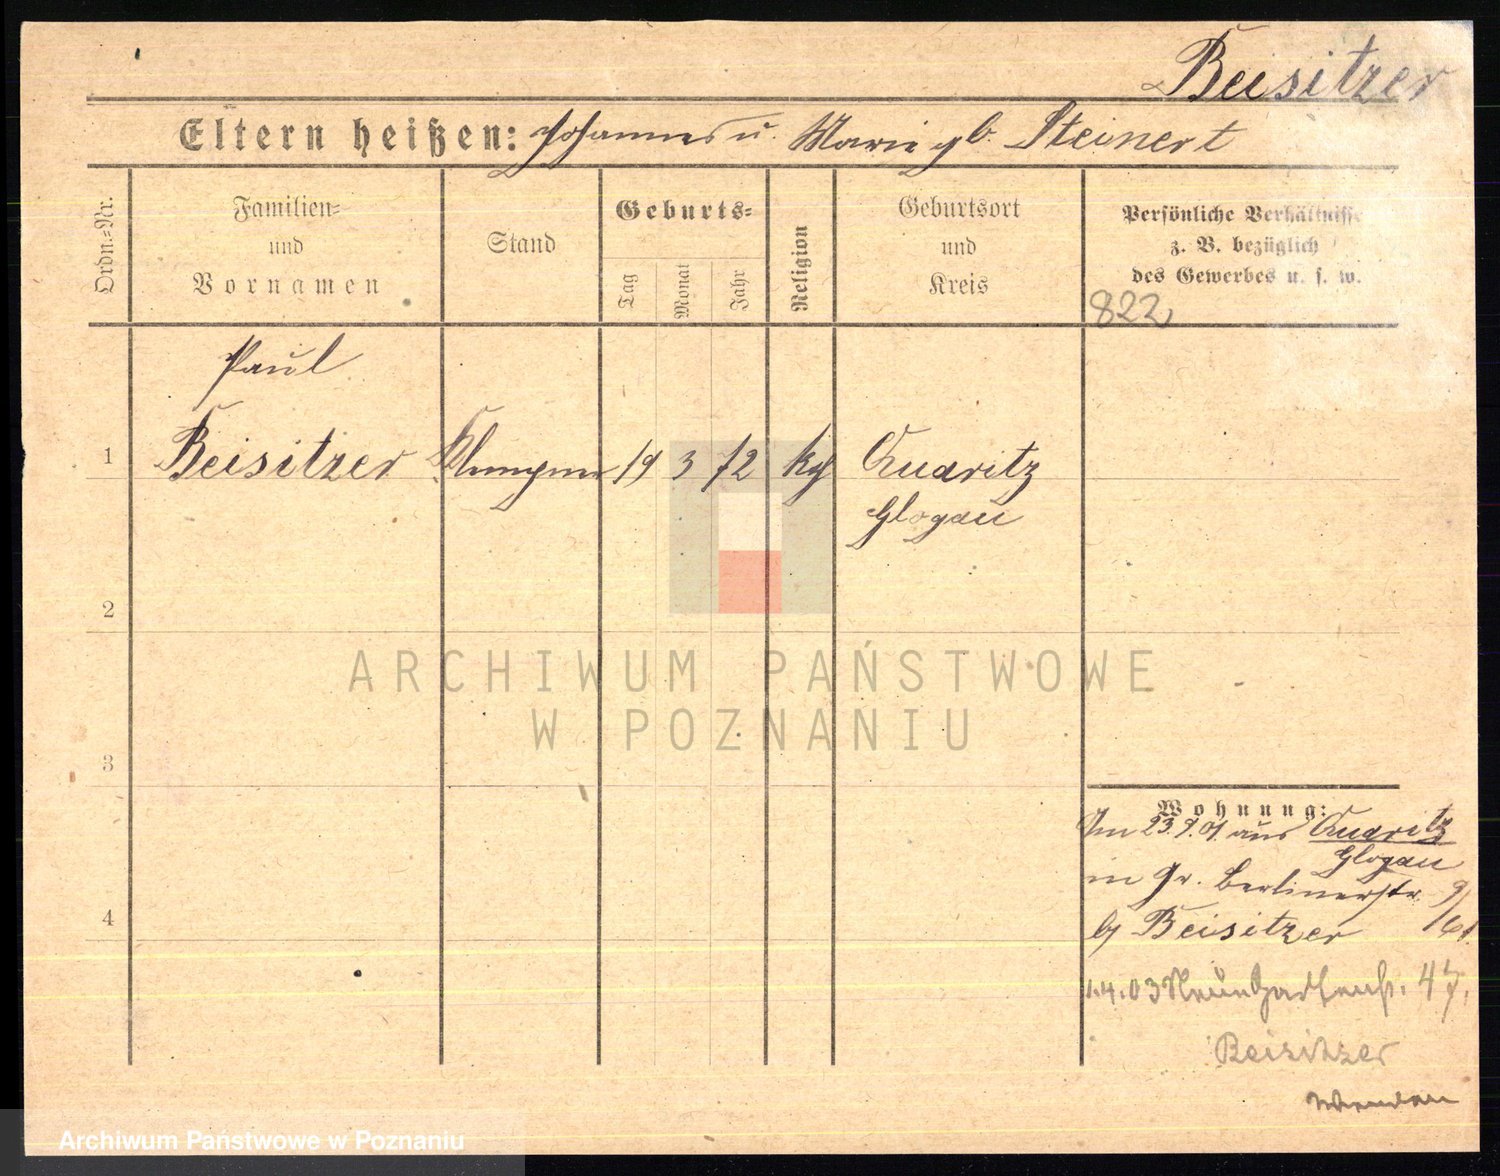 Beisitzer
Eltern heißen: Johannes u. Marie gb. Steinert
Ordn.=Nr.
Familien=
und
Vornamen
Stand
Geburts=
Tag
Monat
Jahr
Religion
Geburtsort
und
Kreis
Persönliche Verhältnisse
z. B. bezüglich
des Gewerbes u. s. w.
822
Paul
1 Beisitzer Klempner 19 3 72 kth Quaritz
Glogau
2
ARCHIWUM PAŃSTWOWE
W POZNANIU
3
Wohnung:
Am 23.9.01 aus Quaritz
Glogau
in Gr. Berlinerstr. 9/
4
b/ Beisitzer
1.4.03 47.
Beisitzer
Archiwum Państwowe w Poznaniu